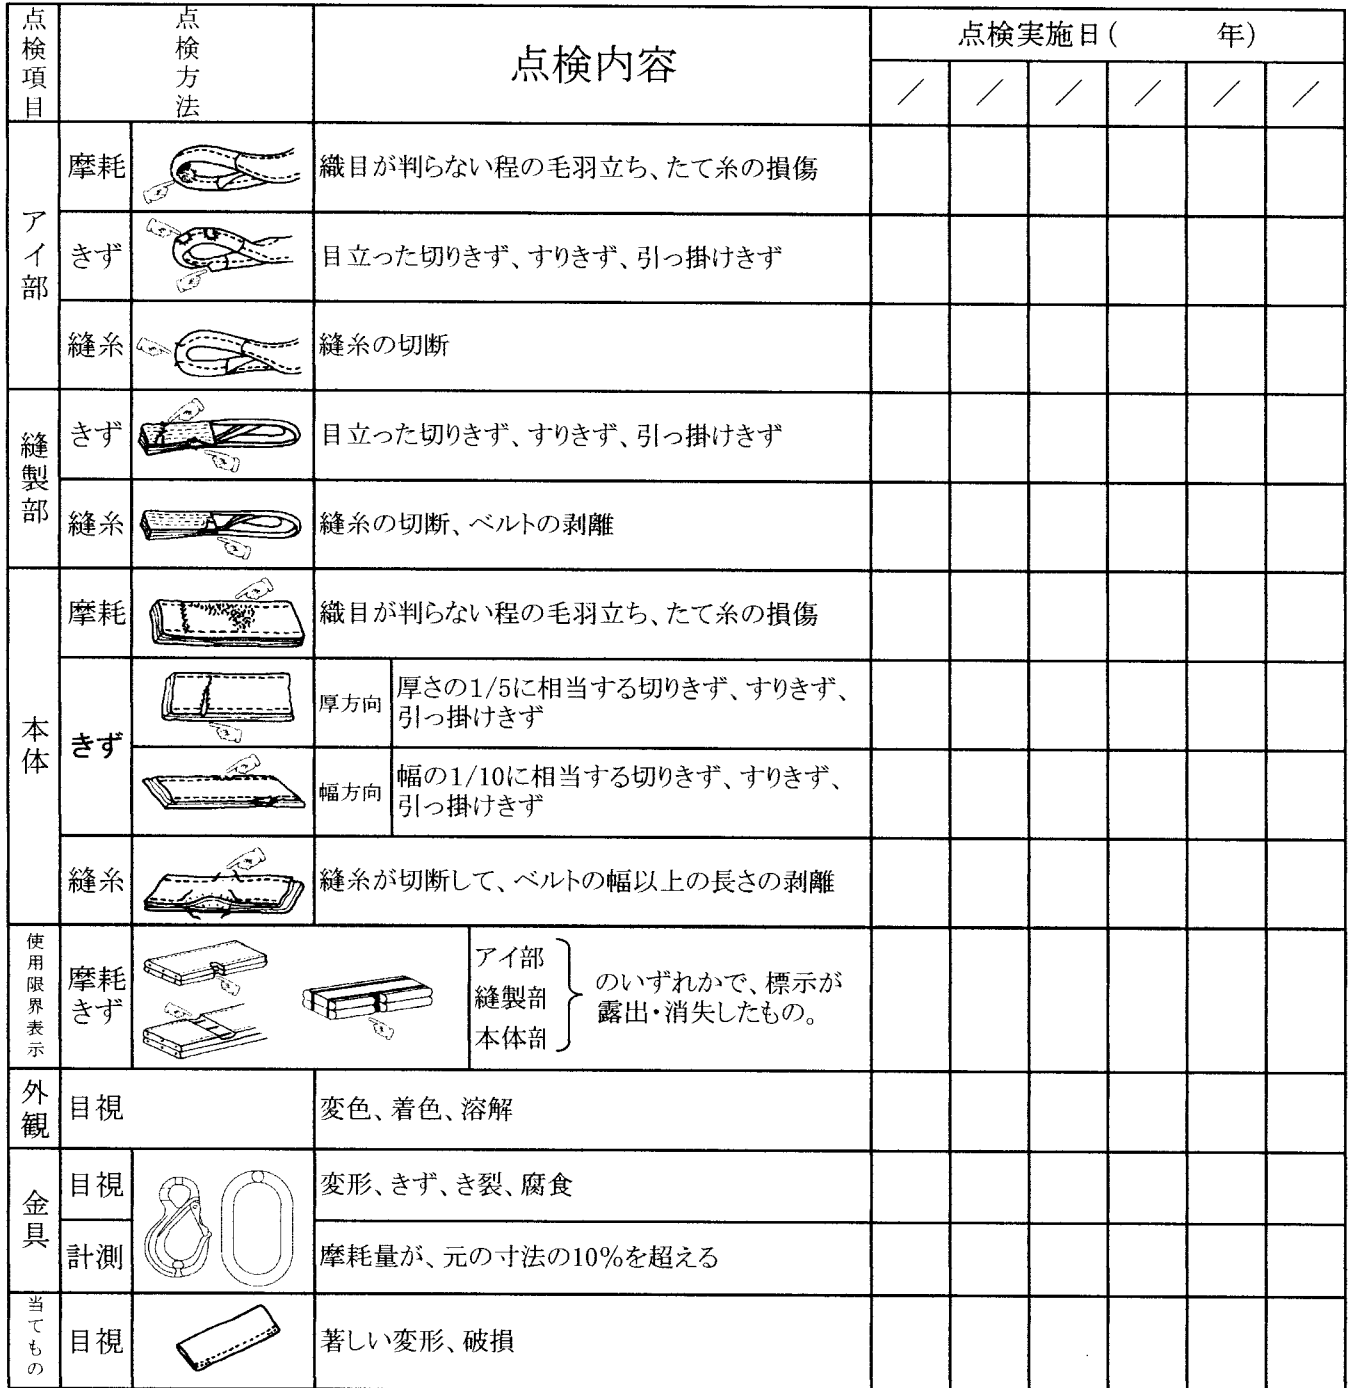 点検項目
点検方法
点検内容
点検実施日( 年)
／ ／ ／ ／ ／ ／
アイ部
摩耗
織目が判らない程の毛羽立ち、たて糸の損傷
きず
目立った切りきず、すりきず、引っ掛けきず
縫糸
縫糸の切断
縫製部
きず
目立った切りきず、すりきず、引っ掛けきず
縫糸
縫糸の切断、ベルトの剥離
本体
摩耗
織目が判らない程の毛羽立ち、たて糸の損傷
きず
厚方向
厚さの1/5に相当する切りきず、すりきず、
引っ掛けきず
幅方向
幅の1/10に相当する切りきず、すりきず、
引っ掛けきず
縫糸
縫糸が切断して、ベルトの幅以上の長さの剥離
使用限界表示
摩耗
きず
アイ部
縫製部
本体部
のいずれかで、標示が
露出・消失したもの。
外観
目視
変色、着色、溶解
金具
目視
変形、きず、き裂、腐食
計測
摩耗量が、元の寸法の10%を超える
当てもの
目視
著しい変形、破損